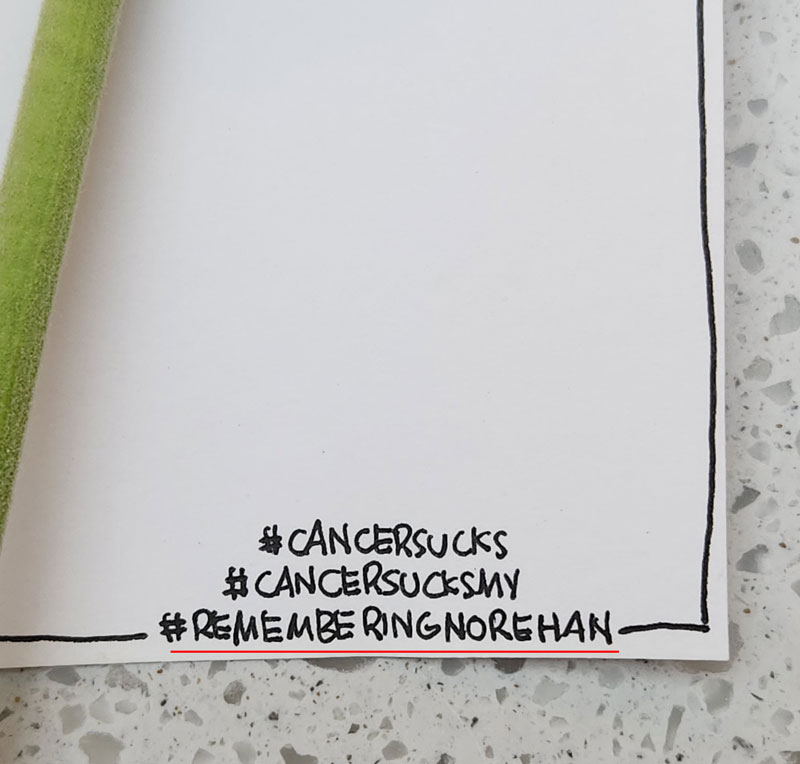 #CANCERSUCKS
#CANCERSUCKSMY
#REMEMBERINGNOREHAN